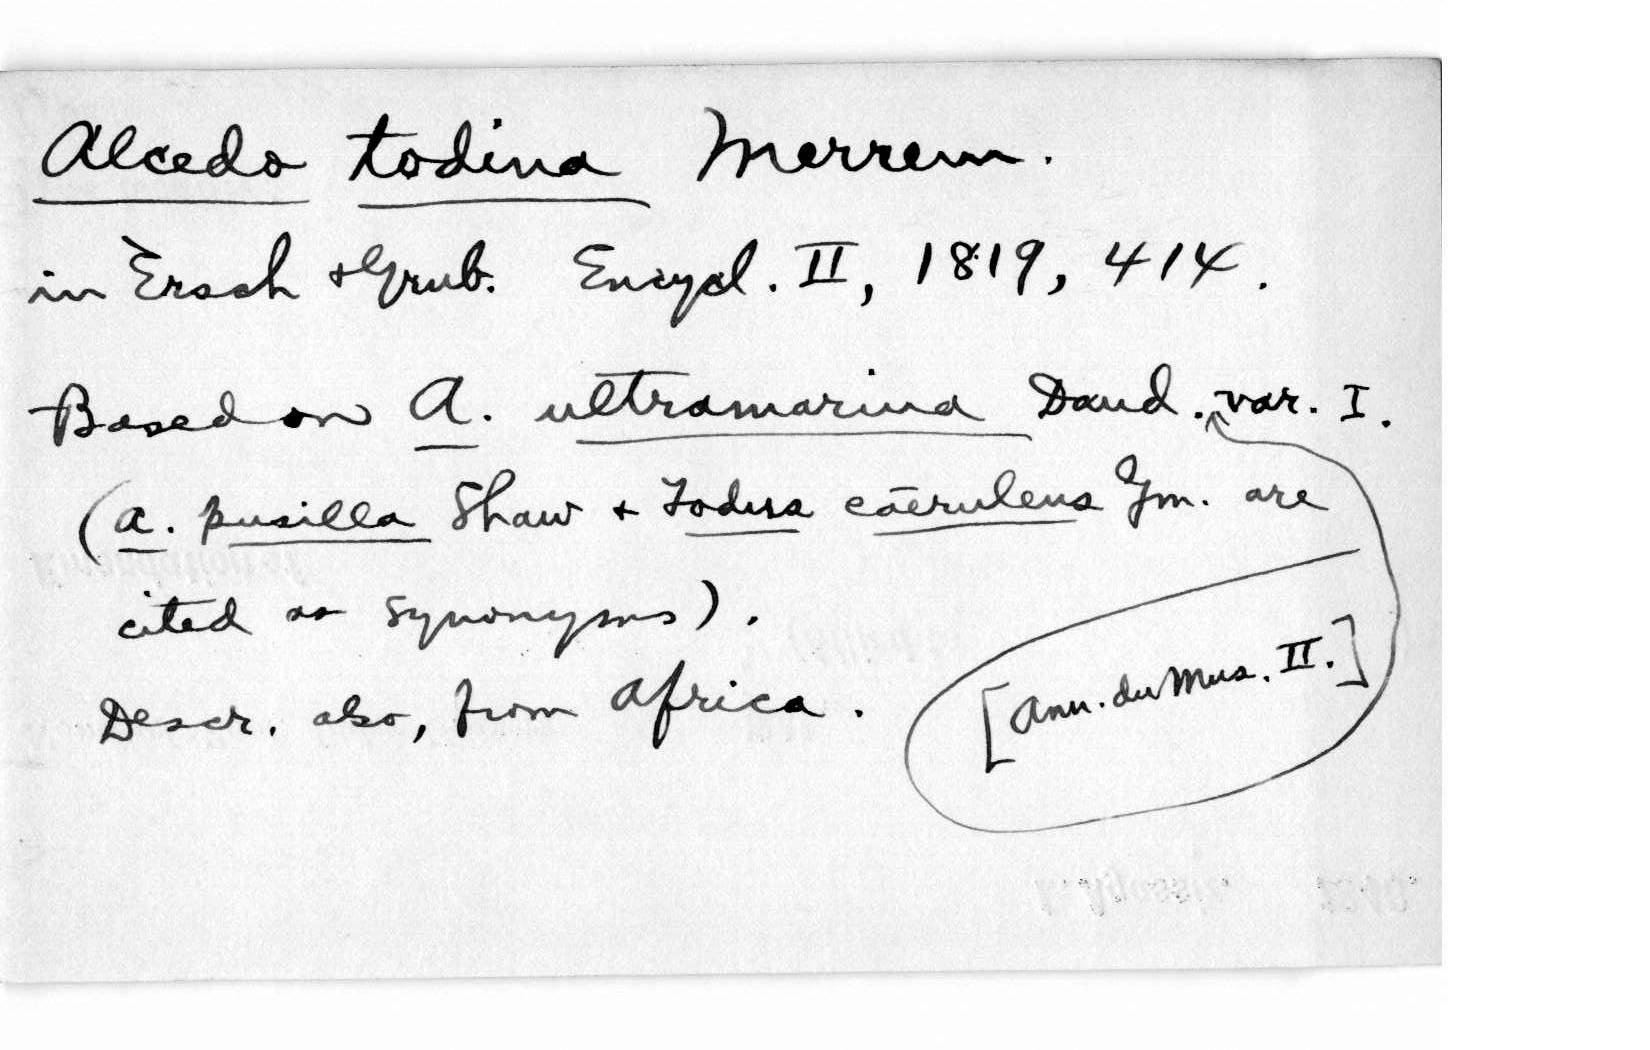 Alcedo todina Merrem.
in Ersch & Grub. Encycl. II, 1819, 414.
Based on A. ultramarina Daud. var. I.
(A. pusilla Shaw + Todus caeruleus Gm. are
cited as synonyms).
Descr. also, from Africa.
[Ann. du Mus. II.]